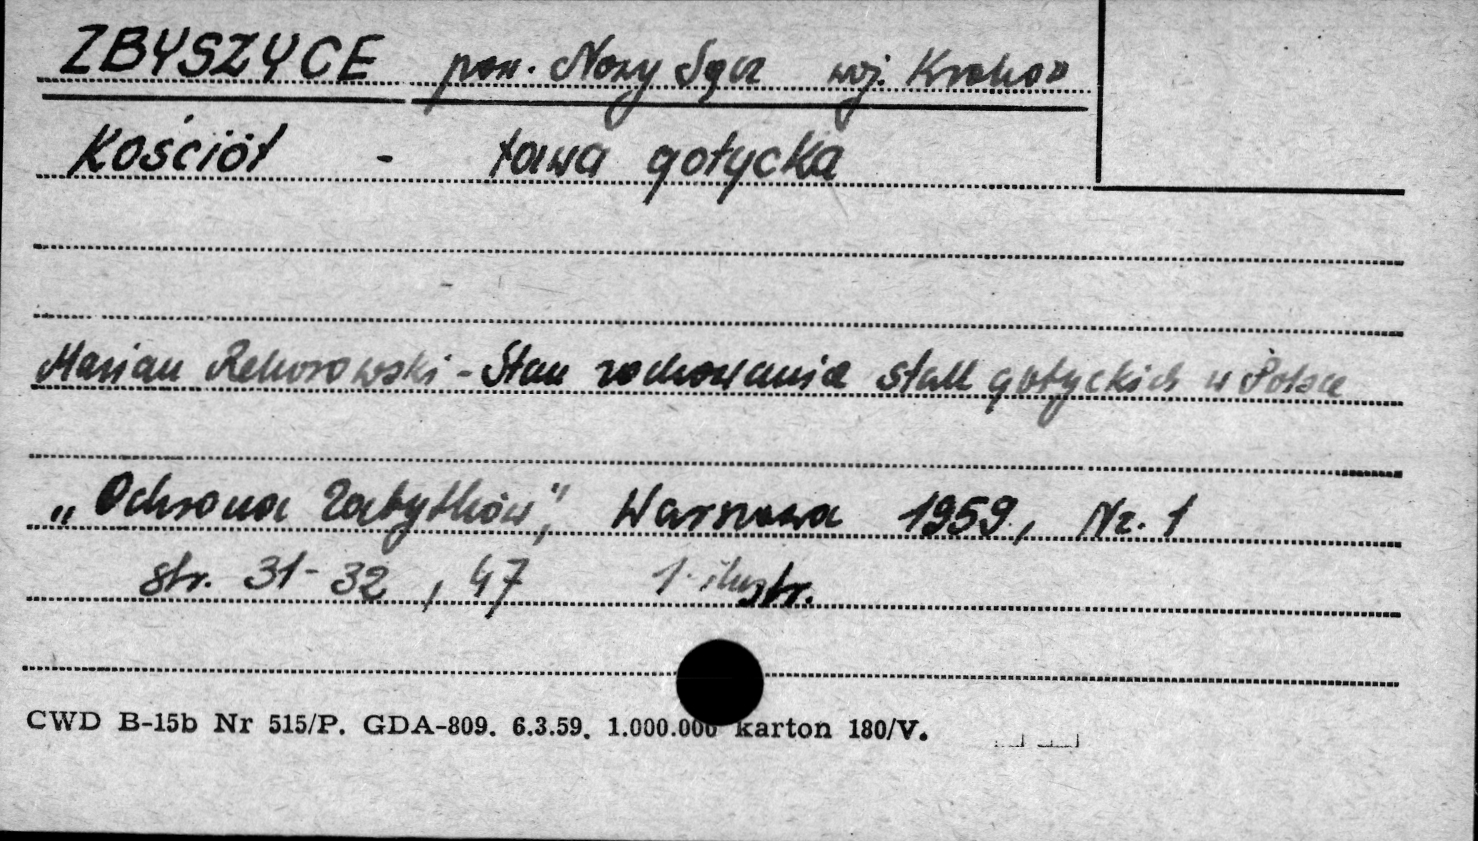 ZBYSZYCE pow. Nowy Sącz woj. Kraków
Kościół - ława gotycka
Marian Rehorowski - Stan zachowania stall gotyckich w Polsce
„Ochrona Zabytków", Warszawa 1959, Nr. 1
str. 31-32, 47 1 ilustr.
CWD B-15b Nr 515/P. GDA-809. 6.3.59. 1.000.000 karton 180/V.